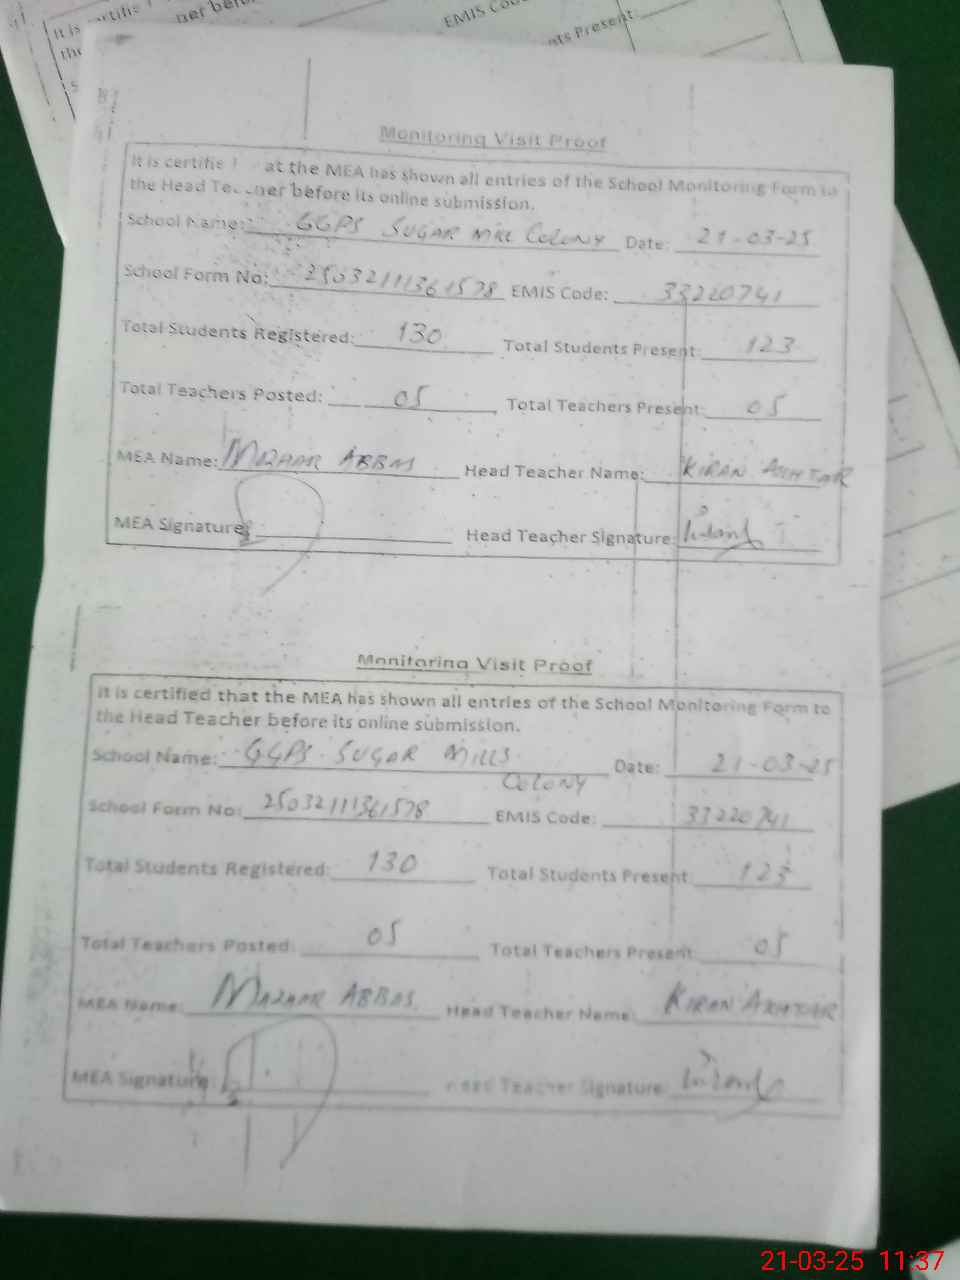 It is
ner before
EMIS Code
the
nts Present:
Monitoring Visit Proof
It is certifie at the MEA has shown all entries of the School Monitoring Form to
the Head Teacher before its online submission.
School Name: GGPS SUGAR MILL COLONY Date: 21-03-25
School Form No: 25032111361578 EMIS Code: 33220741
Total Students Registered: 130 Total Students Present: 123
Total Teachers Posted: 05 Total Teachers Present: 05
MEA Name: MAZHAR ABBAS Head Teacher Name: KIRAN AKHTAR
MEA Signature: Head Teacher Signature:
Monitoring Visit Proof
It is certified that the MEA has shown all entries of the School Monitoring Form to
the Head Teacher before its online submission.
School Name: GGPS SUGAR MILLS Date: 21-03-25
COLONY
School Form No: 25032111361578 EMIS Code: 33220741
Total Students Registered: 130 Total Students Present: 123
Total Teachers Posted: 05 Total Teachers Present: 05
MEA Name: MAZHAR ABBAS Head Teacher Name: KIRAN AKHTAR
MEA Signature: Head Teacher Signature:
21-03-25 11:37